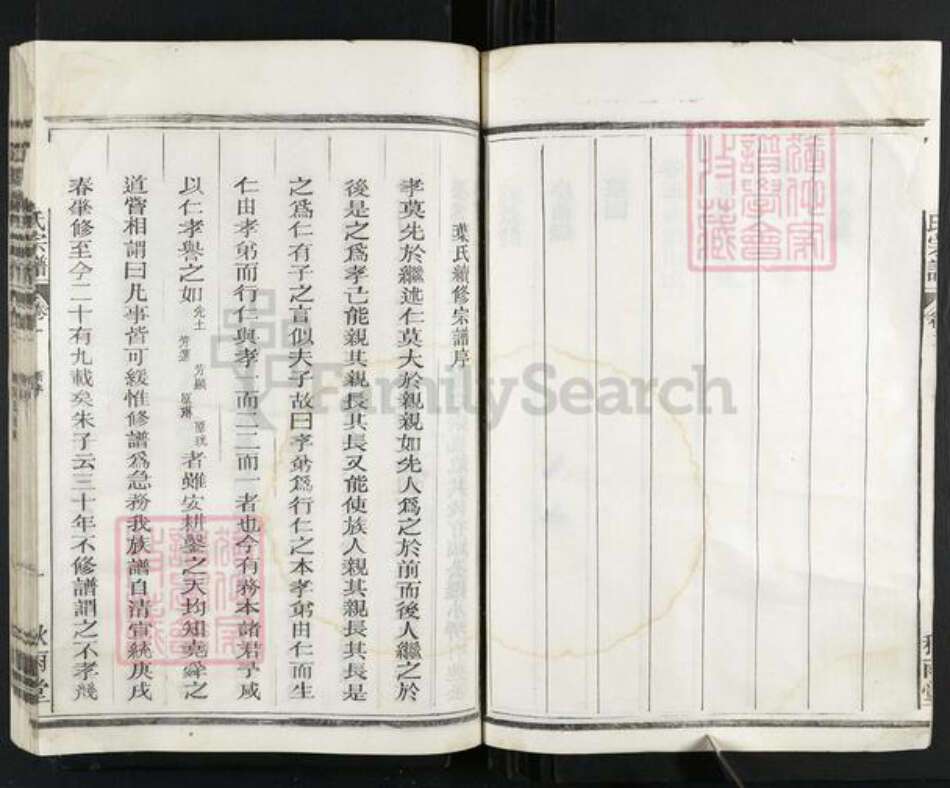 葉氏續修宗譜序
孝莫先於繼述仁莫大於親親如先人爲之於前而後人繼之於
後是之爲孝己能親其親長其長又能使族人親其親長其長是
之爲仁有子之言似夫子故曰孝弟爲行仁之本孝弟由仁而生
仁由孝弟而行仁與孝一而二二而一者也今有務本諸君子咸
以仁孝譽之如先土 芳顯 者雖安耕鑿之天均知堯舜之
道嘗相謂曰凡事皆可緩惟修譜爲急務我族譜自清宣統庚戌
春肇修至今二十有九載矣朱子云三十年不修譜謂之不孝幾
氏宗譜
卷一
秋雨堂
氏宗譜
秋雨堂
FamilySearch